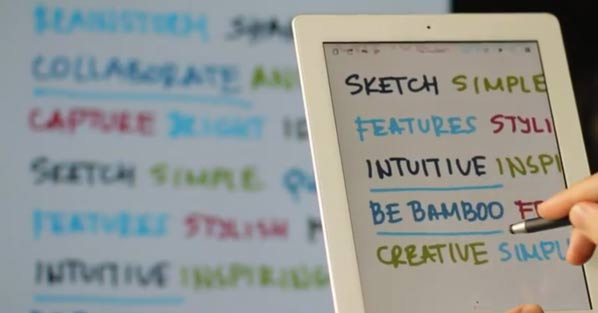 BRAINSTORM
COLLABORATE
CAPTURE BRIGHT
SKETCH SIMPLE
FEATURES STYLISH
INTUITIVE INSPIRING
SKETCH SIMPLE
FEATURES STYLI
INTUITIVE INSPI
BE BAMBOO
CREATIVE SIMPL